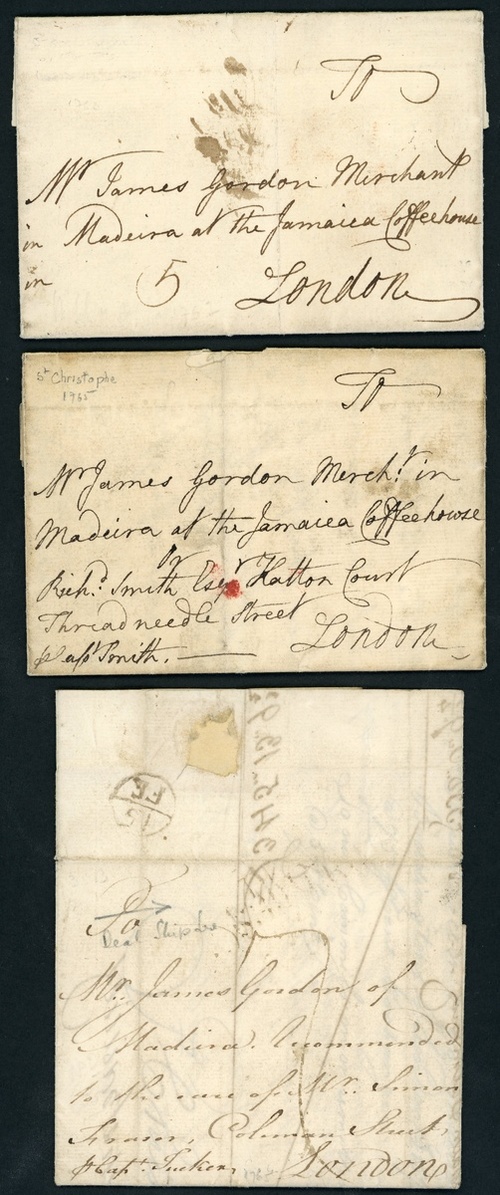 To
Mr James Gordon Merchant
in Madeira at the Jamaica Coffeehouse
in 5 London
St Christophe
1765
To
Mr James Gordon Mercht. in
Madeira at the Jamaica Coffeehouse
or
Richd. Smith Esqr Hatton Court
Threadneedle Street
Capt Smith. London
15
FE
To
Deal Ship
7
Mr. James Gordon of
Madeira. Recommended
to the care of Mr. Simon
Fraser, Colman Street,
Capt. Tucker, London